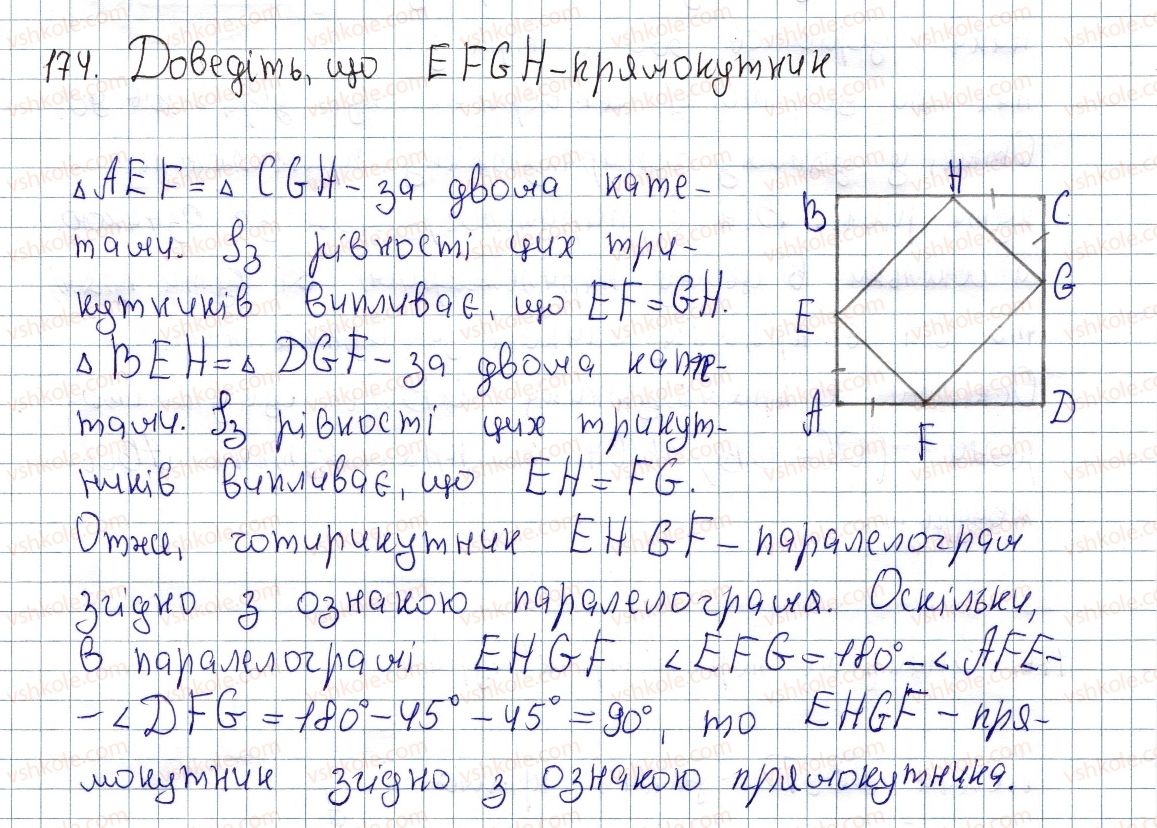 174. Доведіть, що EFGH-прямокутник
△AEF=△CGH-за двома кате-
тами. Із рівності цих три-
кутників випливає, що EF=GH.
△BEH=△DGF-за двома кате-
тами. Із рівності цих трикут-
ників випливає, що EH=FG.
Отже, чотирикутник EHGF-паралелограм
згідно з ознакою паралелограма. Оскільки,
в паралелограмі EHGF ∠EFG=180°-∠AFE-
-∠DFG=180°-45°-45°=90°, то EHGF-пря-
мокутник згідно з ознакою прямокутника.
B H C
E G
A F D
vshkole.com